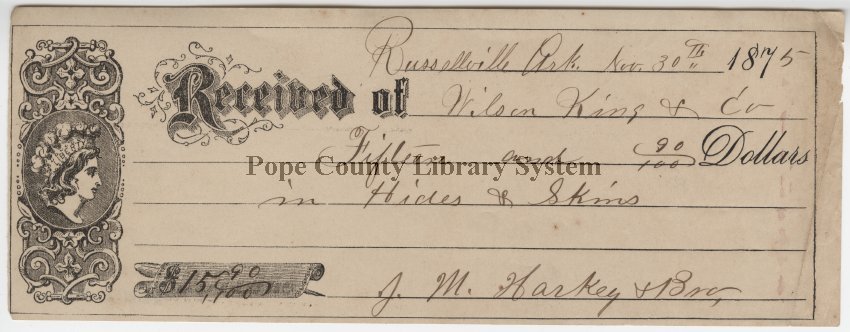 Russellville Ark. Nov. 30th 1875
Received of Wilson King & Co
Fifteen and 90/100 Dollars
Pope County Library System
in Hides & Skins
$15 90/100
J. M. Harkey & Bro,
LIBERTY